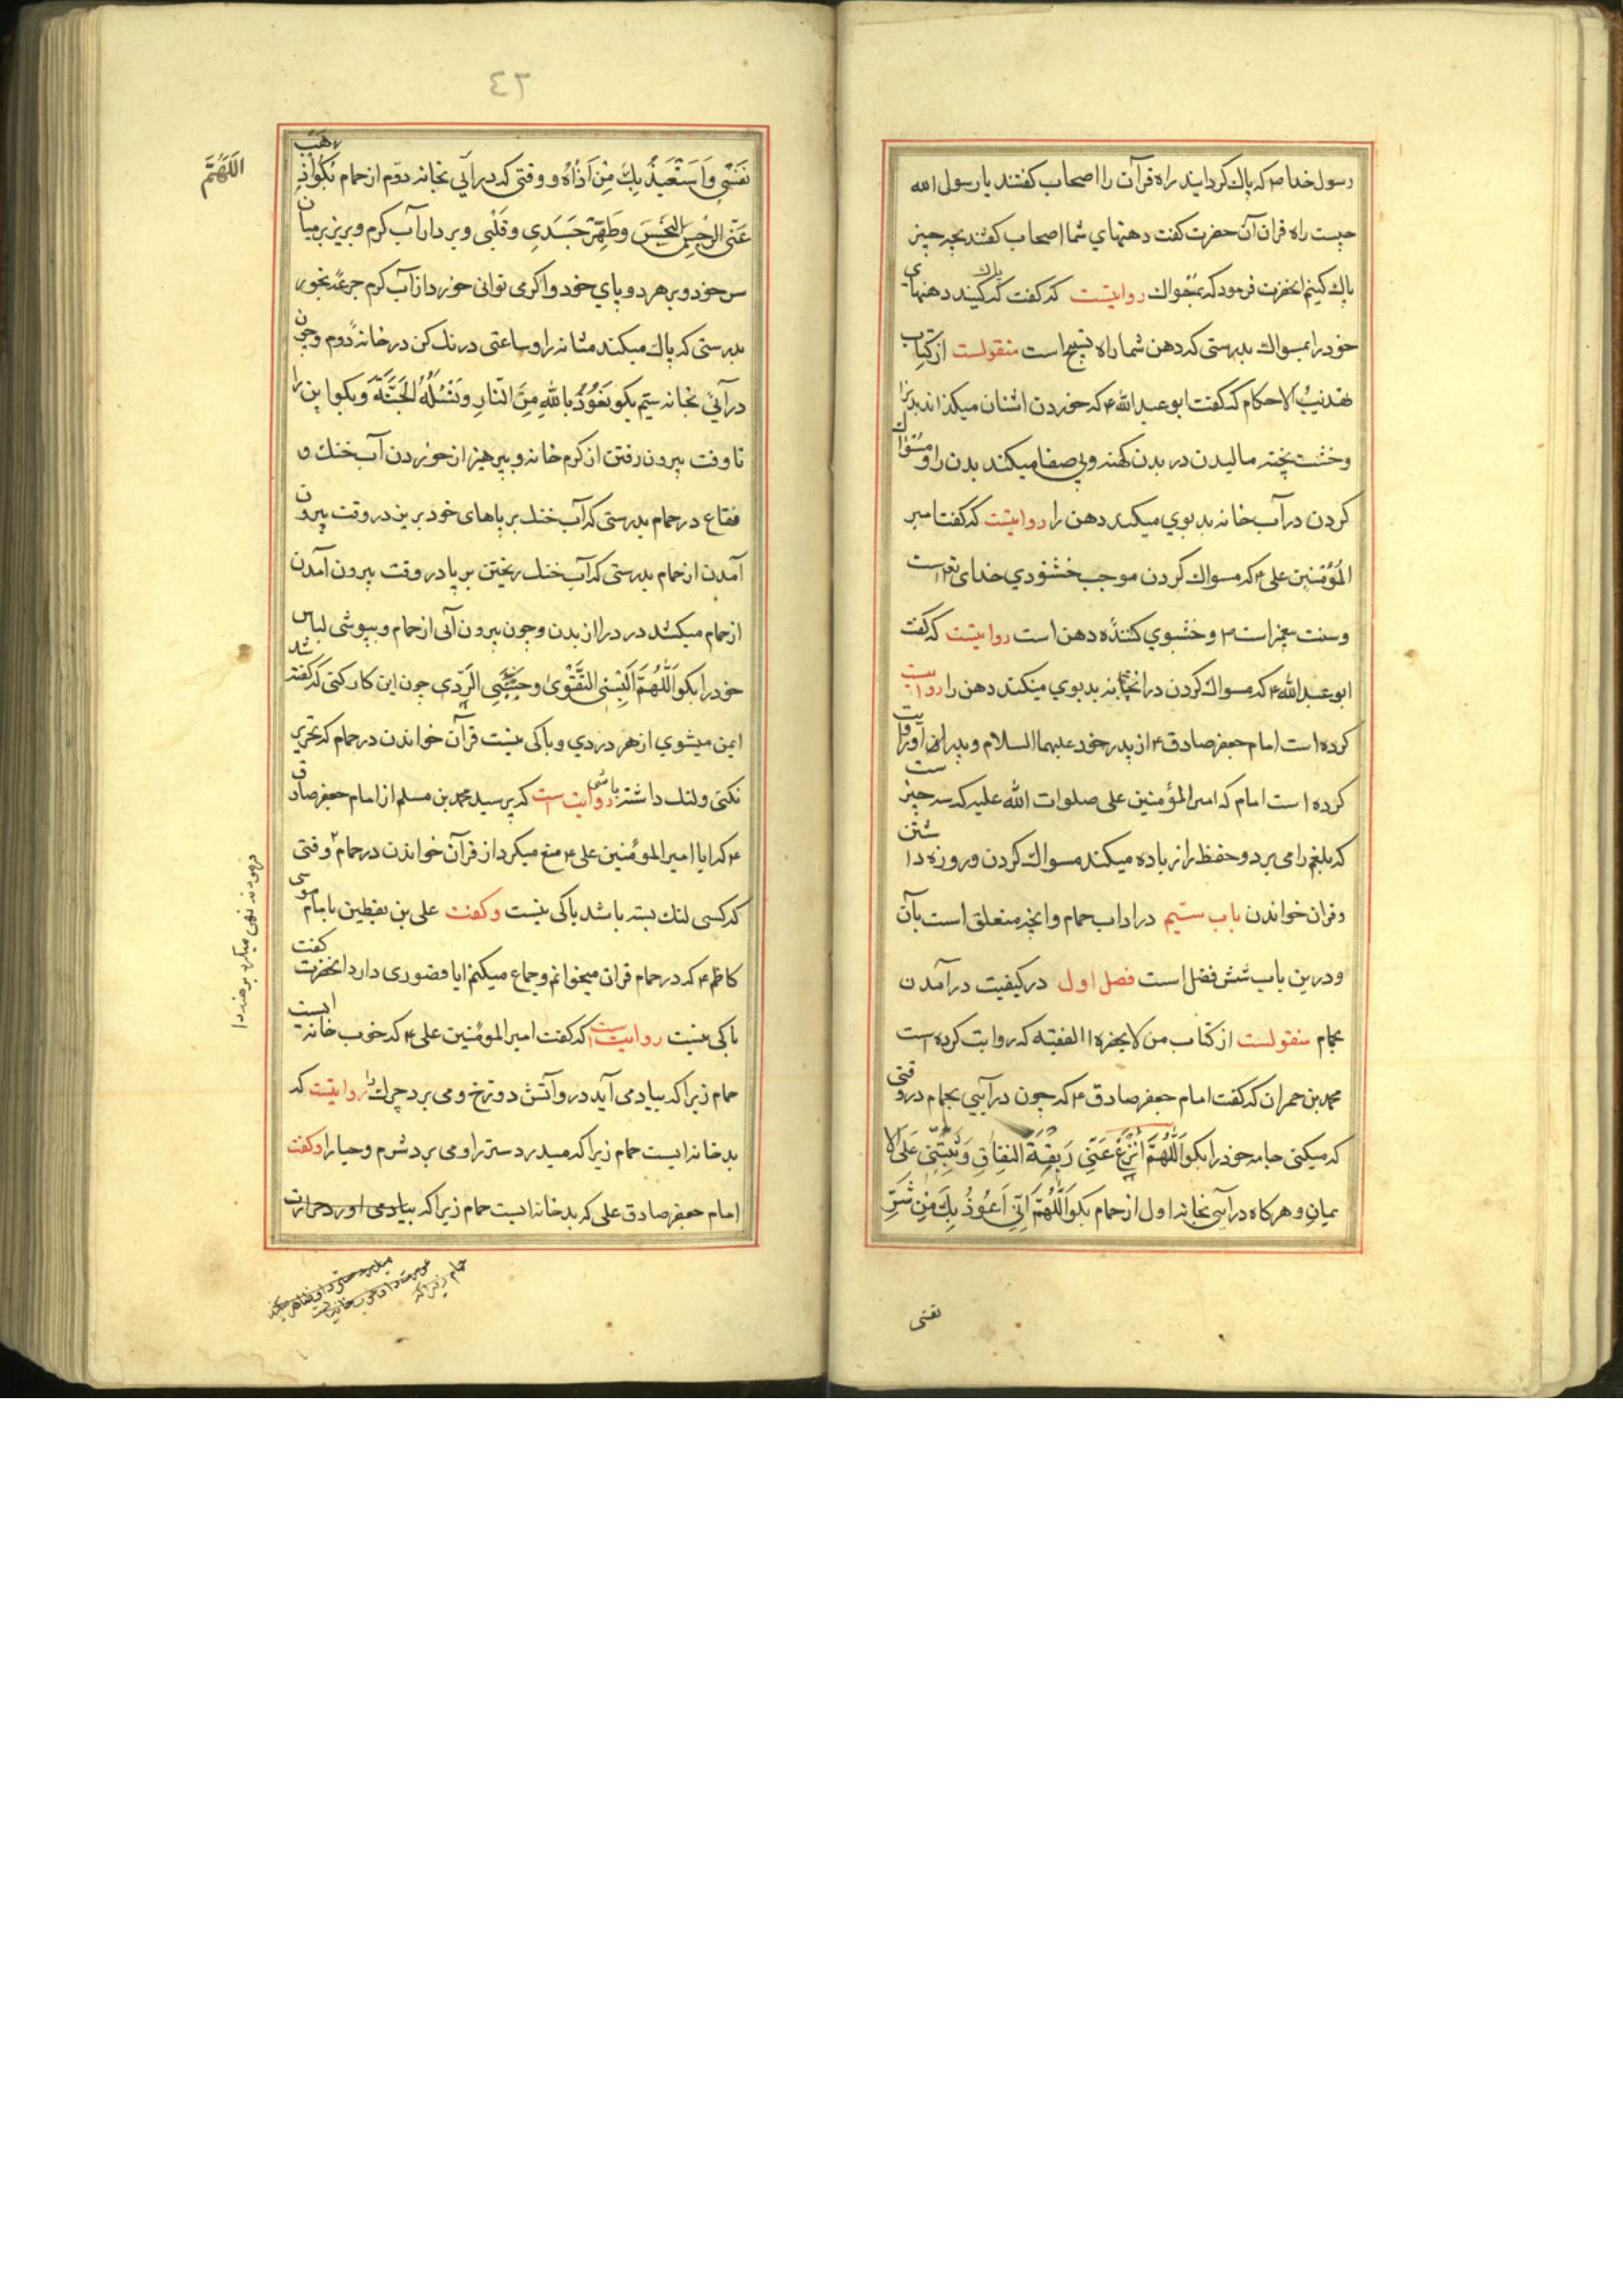 رسول خدا ص که پاک کردانید راه قرآن را اصحاب کفتند یا رسول الله
چیست راه قران آن حضرت کفت دهنهای شما اصحاب کفتند بچه چیز
پاک کنیم انحضرت فرمود که بمسواک روایتست که کفت که پاک کنید دهنهای
خود را بمسواک بدرستی که دهن شما راه تسبیح است منقولست از کتاب
تهذیب الاحکام که کفت ابو عبد الله ع که خوردن اشنان میکذاند بدن را
وخشت پخته مالیدن در بدن کهنه وبی صفا میکند بدن را ومسواک
کردن در آب خانه بد بوی میکند دهن را روایتست که کفت امیر
المؤمنین علی ع که مسواک کردن موجب خشنودی خدای تع است
وسنت پیغمبر است ص وخشبوی کننده دهن است روایتست که کفت
ابو عبد الله ع که مسواک کردن در آبخانه بد بوی میکند دهن را روایت
کرده است امام جعفر صادق ع از پدر خود علیهما السلام وپدر ان روایت
کرده است امام که امیر المؤمنین علی صلوات الله علیه که سه چیز است
که بلغم را می برد وحفظ را زیاده میکند مسواک کردن وروزه داشتن
وقران خواندن باب سیم در اداب حمام وانچه متعلق است بآن
ودرین باب شش فصل است فصل اول در کیفیت درآمدن
بحمام منقولست از کتاب من لا یحضره الفقیه که روایت کرده است
محمد بن حمران که کفت امام جعفر صادق ع که چون در آیی بحمام در وقتی
که میکنی جامه خود را بکو اَللّهُمَّ انْزَعْ عَنّی رَبْقَةَ النِفاقِ وَثَبِّتْنی عَلَی الا
یمان وهرکاه در آیی بخانه اول از حمام بکو اَللّهُمَّ اِنّی اَعُوذُ بِکَ مِنْ شَرِّ
نفسی
٤٢
نَفْسی وَاَسْتَعیذُ بِکَ مِنْ اَذاهُ ووقتی که در آیی بخانه دوّم از حمام بکو اَذْهِبْ
اَللّهُمَّ
عَنّی الرِجْسَ النَّجِسَ وَطَهِّرْ جَسَدی وقَلْبی وبردار آب کرم وبریز بر میان
سر خود وبر هر دو پای خود واکر می توانی خورد از آب کرم جرعهٔ بخور
بدرستی که پاک میکند مثانه را وساعتی درنک کن در خانهٔ دوم وچون
در آئی بخانه سیم بکو نَعُوذُ بِاللهِ مِنَ النّارِ وَنَسْئَلُهُ الْجَنَّةَ وبکو این را
تا وقت بیرون رفتن از کرم خانه وبپرهیز از خوردن آب خنک و
فقاع در حمام بدرستی که آب خنک بر پاهای خود بریز در وقت بیرون
آمدن از حمام بدرستی که آب خنک ریختن بر پا در وقت بیرون آمدن
از حمام میکشد درد را از بدن وچون بیرون آئی از حمام وبپوشی لباس
خود را بکو اَللّهُمَّ اَلْبِسْنی التَّقْوی وجَنِّبْنی الرَّدی چون این کار کنی که کفته شد
ایمن میشوی از هر دردی وباکی نیست قرآن خواندن در حمام که تحریر
نکنی ولنک داشته باشی روایت است که پرسید محمد بن مسلم از امام جعفر صادق
ع که ایا امیر المؤمنین علی ع منع میکرد از قرآن خواندن در حمام وقتی
که کسی لنک بسته باشد باکی نیست وکفت علی بن یقطین بامام موسی
کاظم ع که در حمام قران میخوانم وجماع میکنم ایا قصوری دارد انحضرت کفت
باکی نیست روایت است که کفت امیر المومنین علی ع که خوب خانه ایست
حمام زیرا که بیاد می آید در و آتش دوزخ ومی برد چرک را روایتست که
بد خانه ایست حمام زیرا که میدرد ستر را ومی برد شرم وحیا را وکفت
امام جعفر صادق علی که بد خانه ایست حمام زیرا که بیاد می اورد حرارت
حمام زیرا که